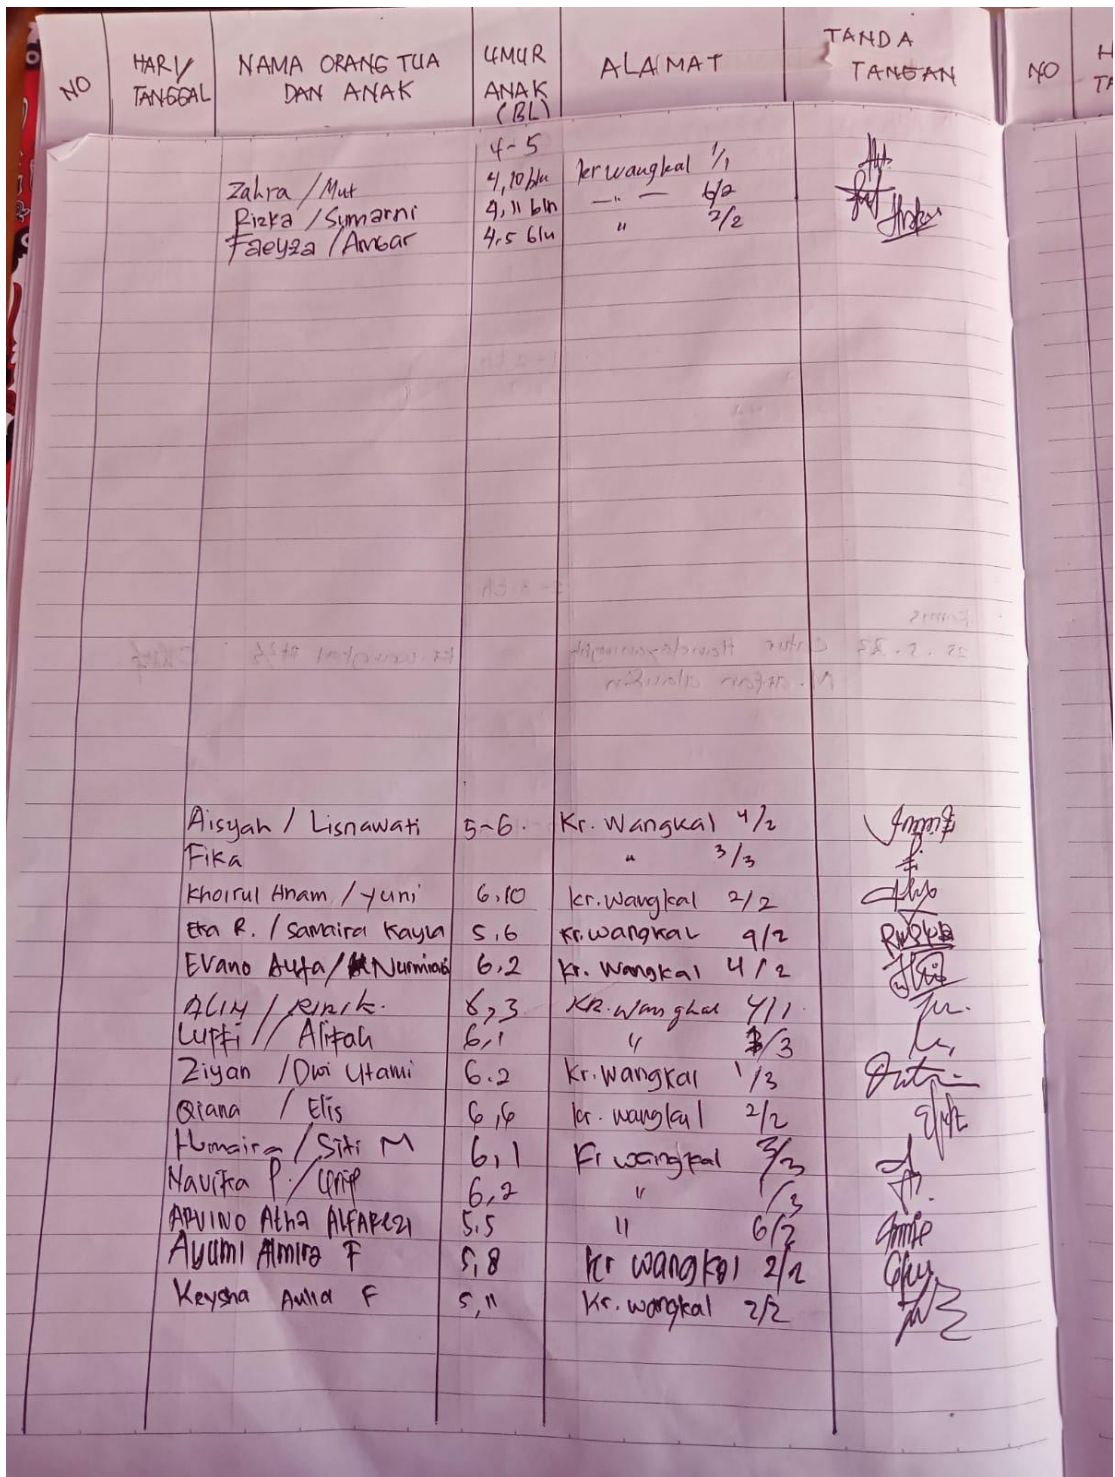 NO HARI/TANGGAL NAMA ORANG TUA DAN ANAK UMUR ANAK (BL) ALAMAT TANDA TANGAN NO
4-5
Zahra / Mut 4,10 bln kr wangkal 1/1
Rizka / Sumarni 4,11 bln —"— 6/2
Faeyza / Ambar 4,5 bln " 2/2
Aisyah / Lisnawati 5-6. Kr. Wangkal 4/2
Fika " 3/3
Khoirul Anam / Yuni 6,10 kr. Wangkal 2/2
Eka R. / Samaira Kayla 5,6 Kr. wangkal 9/2
Evano Aufa / Nurmiasi 6,2 Kr. Wangkal 4/2
ALIM / RINIK. 6,3 KR. Wangkal 4/1
Lutfi / Alifah 6,1 " 3/3
Ziyan / Dwi Utami 6.2 Kr. wangkal 1/3
Qiana / Elis 6,6 kr. wangkal 2/2
Humaira / Siti M 6,1 Kr wangkal 3/3
Navika P. / Urip 6,2 " 1/3
ARVINO Atha ALFAREZI 5.5 " 6/2
Ayumi Almira F 5,8 Kr wangkal 2/2
Keysha Aulia F 5,11 Kr. wangkal 2/2